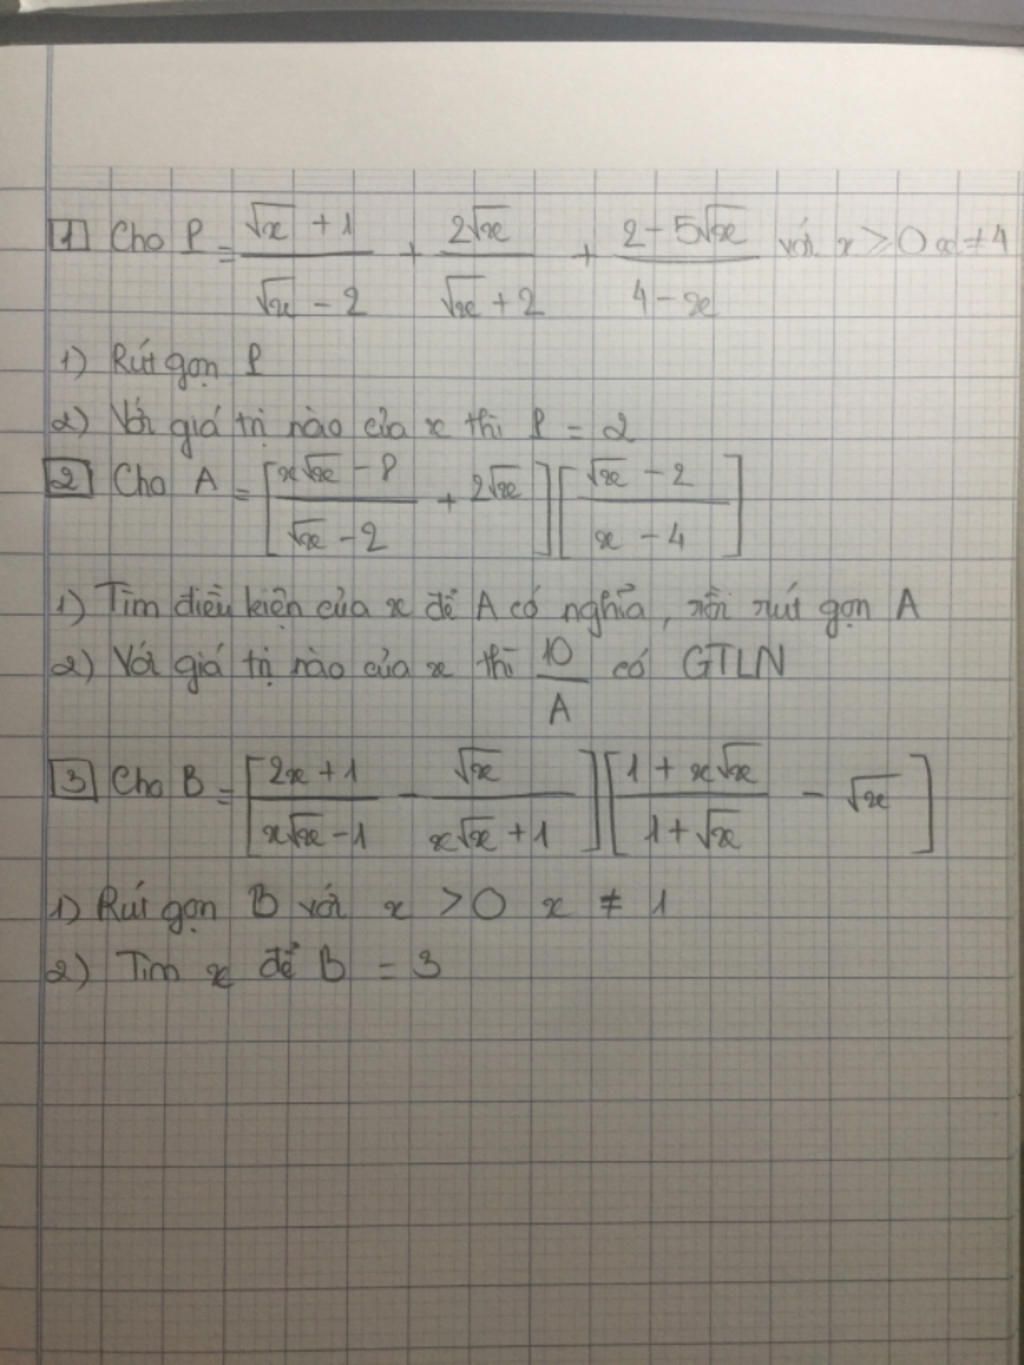 1 Cho P = (√x + 1)/(√x - 2) + 2√x/(√x + 2) + (2 - 5√x)/(4 - x) với x ≥ 0 x ≠ 4
1) Rút gọn P
2) Với giá trị nào của x thì P = 2
2 Cho A = [(x√x - 8)/(√x - 2) + 2√x][(√x - 2)/(x - 4)]
1) Tìm điều kiện của x để A có nghĩa, rồi rút gọn A
2) Với giá trị nào của x thì 10/A có GTLN
3 Cho B = [(2x + 1)/(x√x - 1) - √x/(x√x + 1)][(1 + x√x)/(1 + √x) - √x]
1) Rút gọn B với x > 0 x ≠ 1
2) Tìm x để B = 3